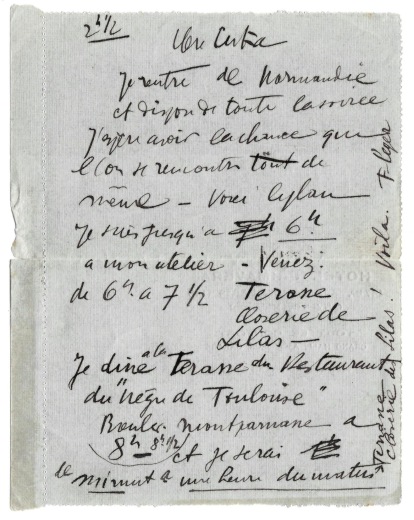 2h 1/2
Mon Cuttoli
Je rentre de Normandie
et dispose de toute la soirée
J'espère avoir la chance que
l'on se rencontre tout de
même – Voici le plan
Je suis jusqu'a 6h.
a mon atelier – Venez.
de 6h a 7 1/2 Terasse
Closerie de
Lilas –
Je dine a la Terasse du Restaurant
du "nègre de Toulouse"
Boulev. montparnasse a
8h 8h 1/2) et je serai
de minuit a une heure du matin
Terasse
Closerie des Lilas. Voila. F Leger